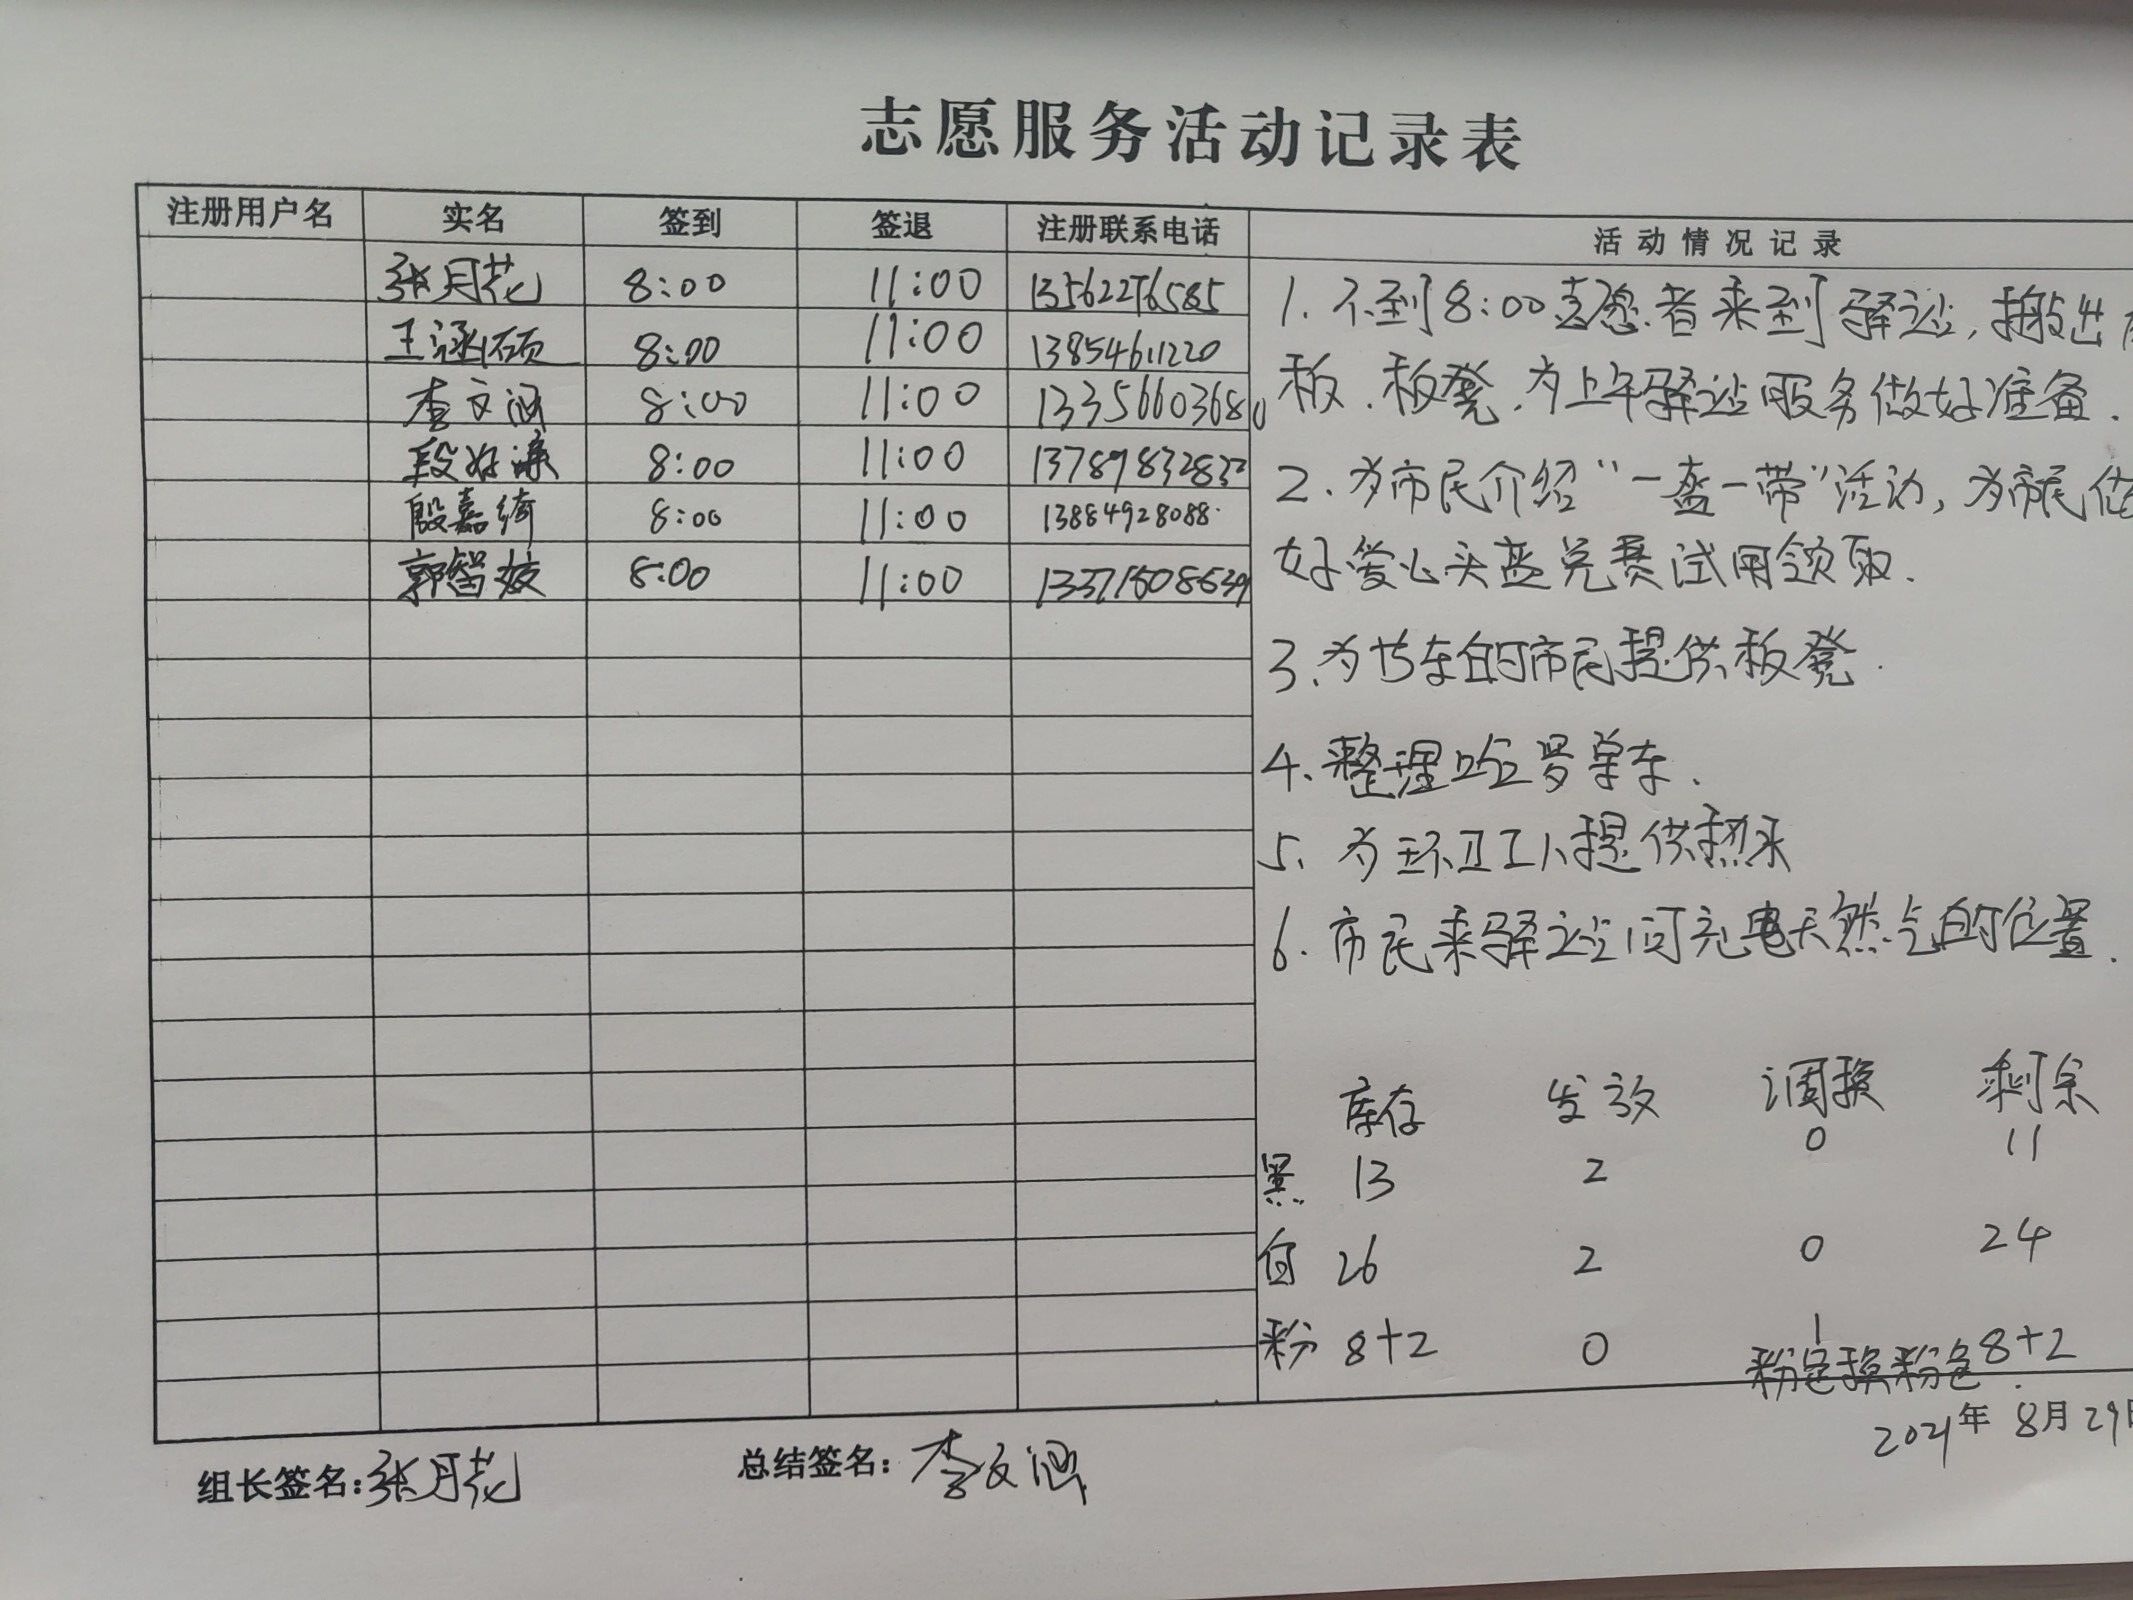 志愿服务活动记录表
注册用户名 实名 签到 签退 注册联系电话 活动情况记录
张月花 8:00 11:00 13562276585
王涵硕 8:00 11:00 13854611220
李文涵 8:00 11:00 13356603680
段好 8:00 11:00 13789832832
殷嘉绮 8:00 11:00 13884928088
郭智姣 8:00 11:00
1. 不到8:00志愿者来到驿站,搬出
板、板凳,为上午驿站服务做好准备.
2、为市民介绍“一盔一带”活动,为市民做
好爱心头盔免费试用领取.
3、为修车的市民提供板凳.
4、整理哈罗单车.
5、为环卫工人提供热水
6、市民来驿站问充电天然气的位置.
库存 发放 调换 剩余
黑 13 2 0 11
白 26 2 0 24
粉 8+2 0 1 8+2
粉色换粉色.
2021年8月29日
组长签名:张月花 总结签名:李文涵